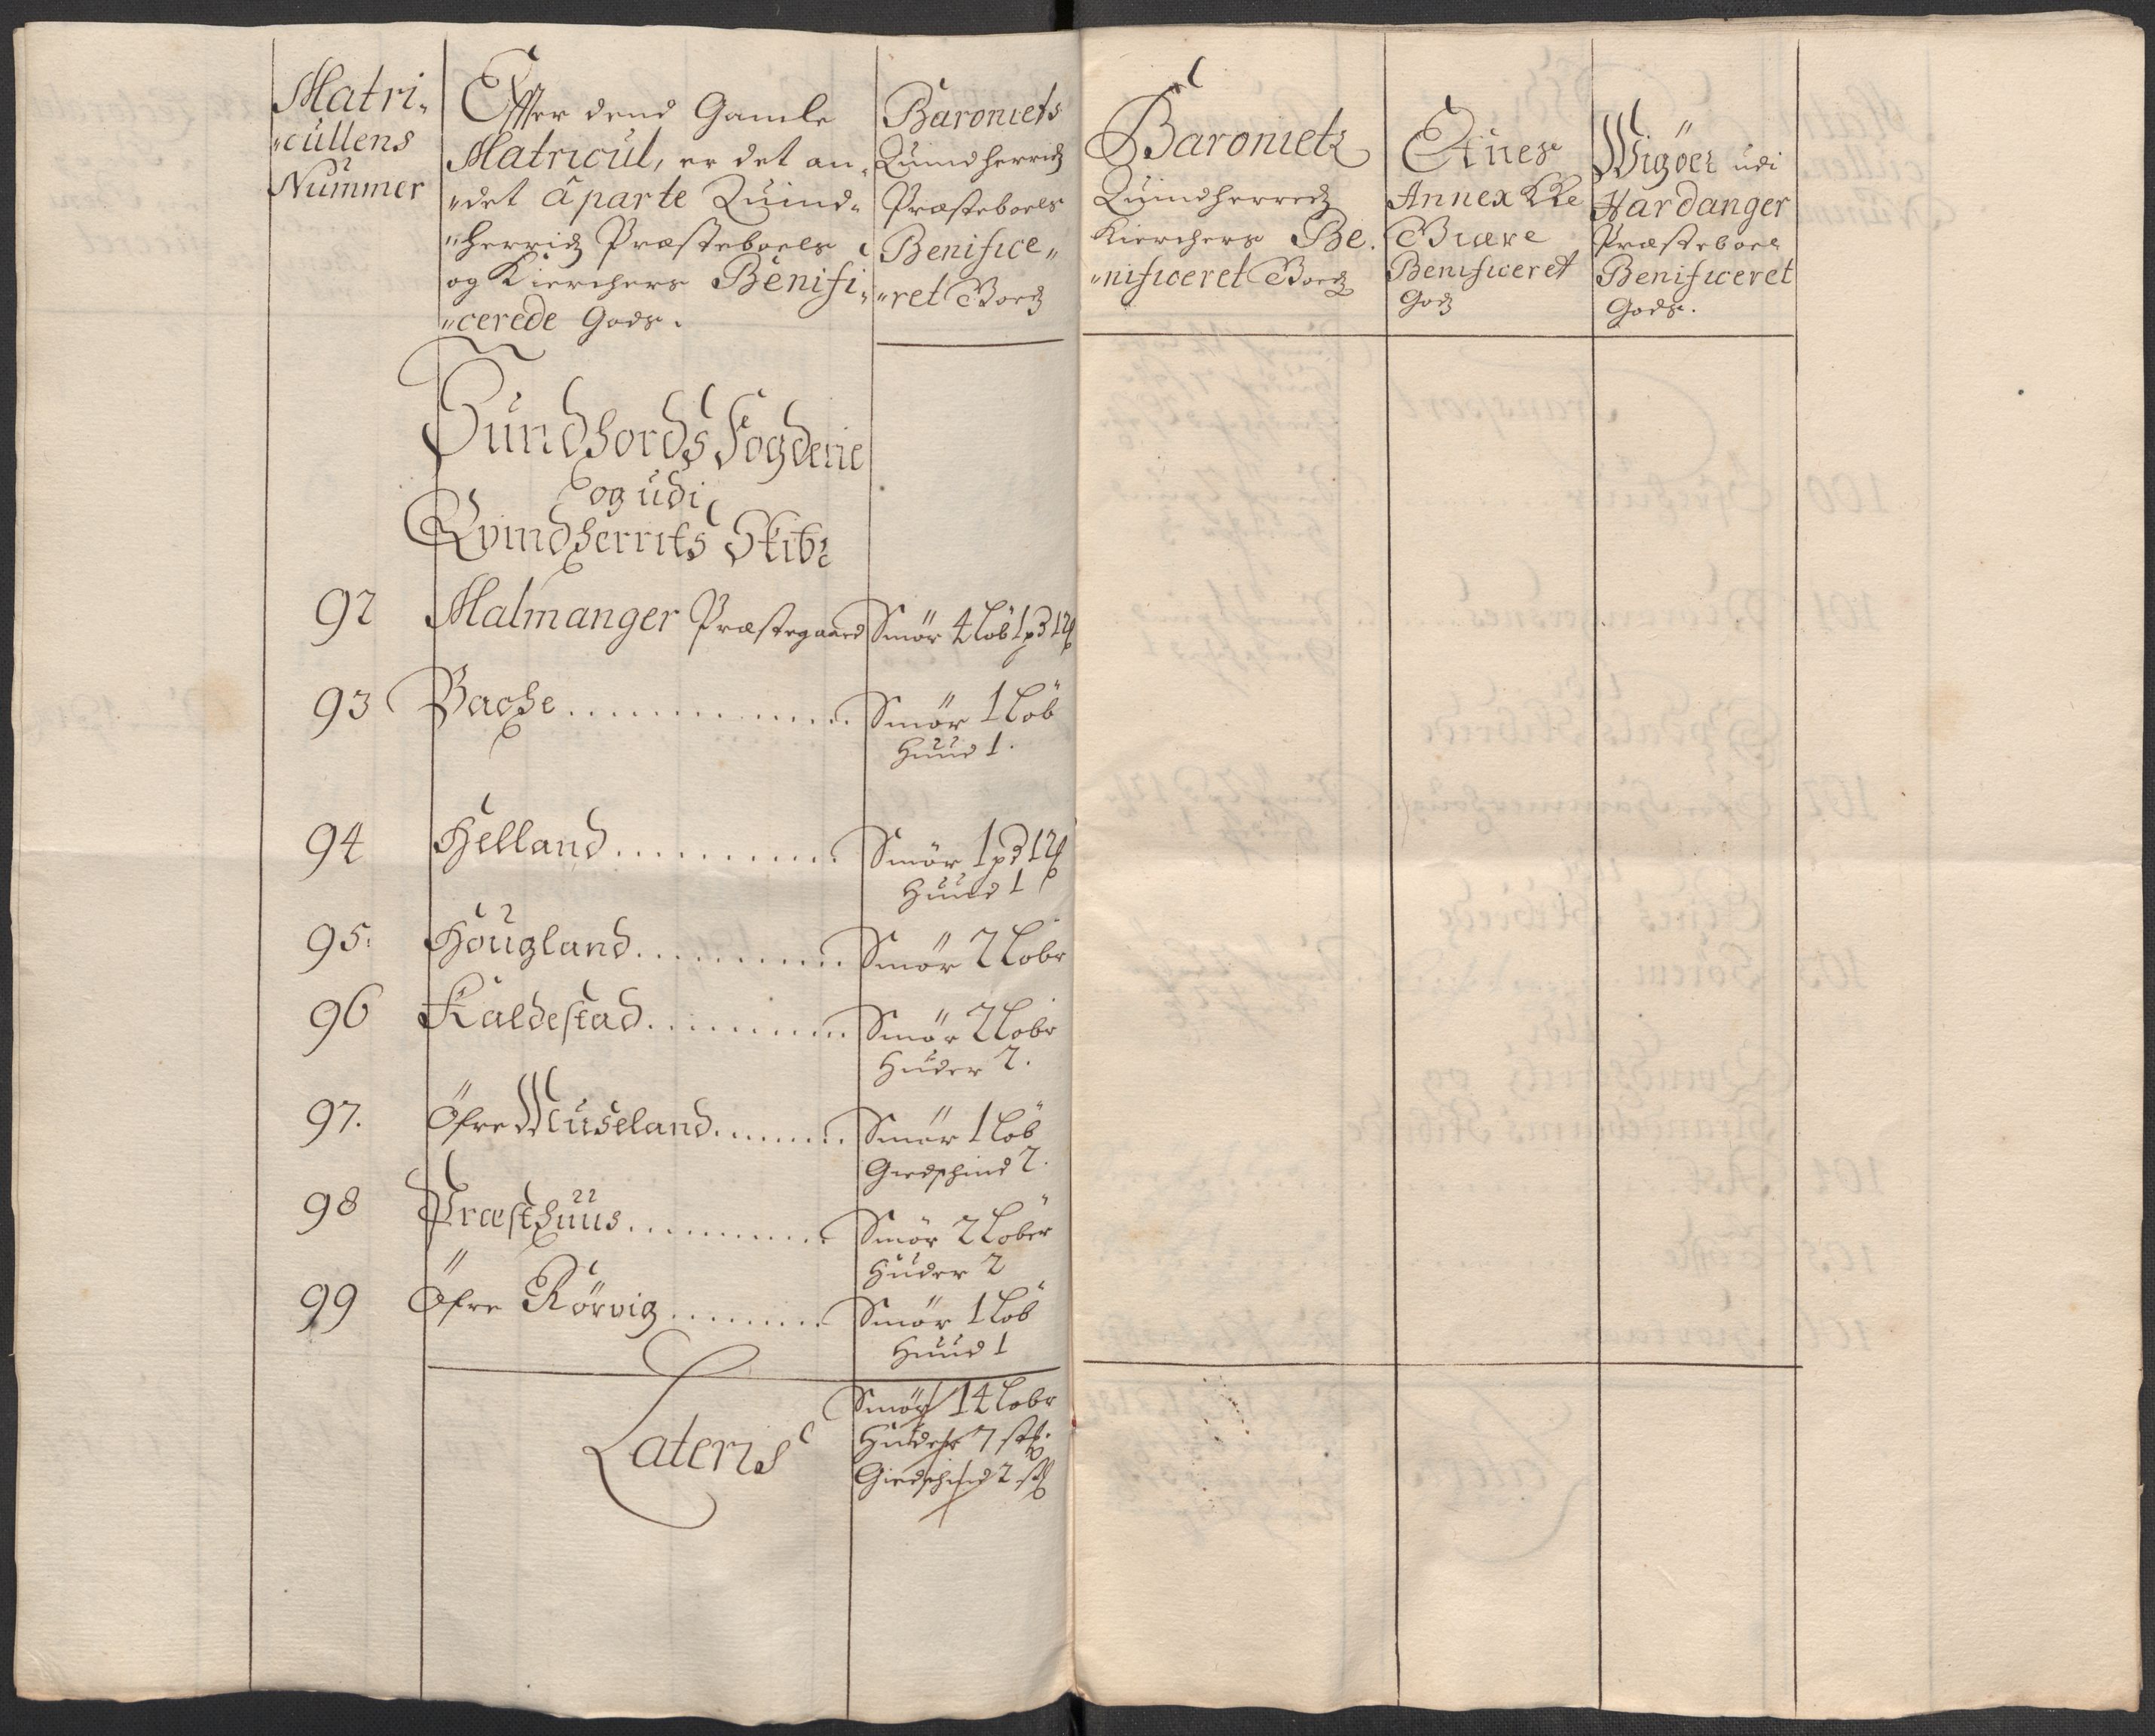 Matri-
"cullens
Nummer
Effter dend Gamle
Matricul, er det an-
"det á parte Quind-
"herridz Præsteboels
og Kierchers Benifi-
"cerede Gods.
Baroniets
Quindherridz
Præsteboels
Benifice"
"ret Goedz
Baronietz
Quindherredz
Kierchers Be-
"nificeret Goedz
Ænes
Annex KKe
Giære
Benificeret
Godz
Wigöer udi
Hardanger
Præsteboel
Benificeret
Gods.
Sundhords Fogderie
og udi
Qvindherrits Skibr
92 Malmanger Præstegaard Smør 4 Löb 1 pd 12 ℔
93 Bache .............. Smør 1 Löb
Huud 1.
94 Helland ........... Smør 1 pd 12 ℔
Huud 1
95. Hougland ........... Smør 2 Löbr
96 Kaldestad .......... Smør 2 Löbr
Huder 2.
97. Öfre Museland ........ Smør 1 Löb
Giedschind 2.
98 Præsthuus ........... Smør 2 Löber
Huder 2
99 Öfre Rörvig ......... Smør 1 Löb
Huud 1
Lateris
Smør 14 Löbr
Huder 7 stk.
Giedschind 2 stk